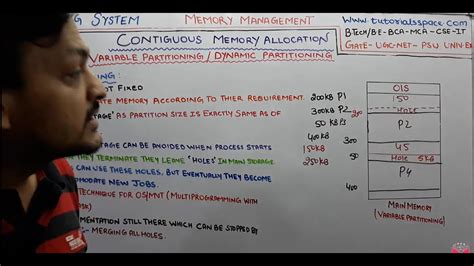 G SYSTEM
MEMORY MANAGEMENT
www.tutorialsspace.com
BTech/BE-BCA-MCA-CSE-IT
GATE-UGC-NET-PSU UNIVE
CONTIGUOUS MEMORY ALLOCATION
VARIABLE PARTITIONING / DYNAMIC PARTITIONING
ING :
OT FIXED
ATE MEMORY ACCORDING TO THIER REQUIREMENT.
AGE' AS PARTITION SIZE IS EXACTLY SAME AS OF
AGE CAN BE AVOIDED WHEN PROCESS STARTS
THEY TERMINATE THEY LEAVE 'HOLES' IN MAIN STORAGE
CAN USE THESE HOLES, BUT EVENTUALLY THEY BECOME
MODATE NEW JOBS.
TECHNIQUE FOR OS/MNT (MULTIPROGRAMMING WITH
MENTATION STILL THERE WHICH CAN BE STOPPED BY
- MERGING ALL HOLES.
200KB P1
300KB P2
50 KB P3
400KB
150KB
250KB
O|S
150
Hole
200
P2
300
45
50
Hole 5KB
P4
400
MAIN MEMORY
(VARIABLE PARTITIONING)